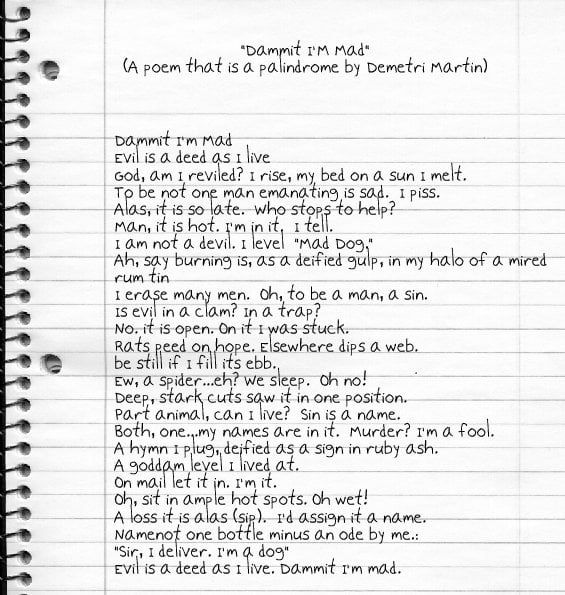 "Dammit I'M Mad"
(A poem that is a palindrome by Demetri Martin)
Dammit I'm Mad
Evil is a deed as I live
God, am I reviled? I rise, my bed on a sun I melt.
To be not one man emanating is sad. I piss.
Alas, it is so late. Who stops to help?
Man, it is hot. I'm in it. I tell.
I am not a devil. I level "Mad Dog."
Ah, say burning is, as a deified gulp, in my halo of a mired
rum tin
I erase many men. Oh, to be a man, a sin.
Is evil in a clam? In a trap?
No. it is open. On it I was stuck.
Rats peed on hope. Elsewhere dips a web.
be still if I fill its ebb.
Ew, a spider...eh? We sleep. Oh no!
Deep, stark cuts saw it in one position.
Part animal, can I live? Sin is a name.
Both, one...my names are in it. Murder? I'm a fool.
A hymn I plug, deified as a sign in ruby ash.
A goddam level I lived at.
On mail let it in. I'm it.
Oh, sit in ample hot spots. Oh wet!
A loss it is alas (sip). I'd assign it a name.
Namenot one bottle minus an ode by me.:
"Sir, I deliver. I'm a dog"
Evil is a deed as I live. Dammit I'm mad.